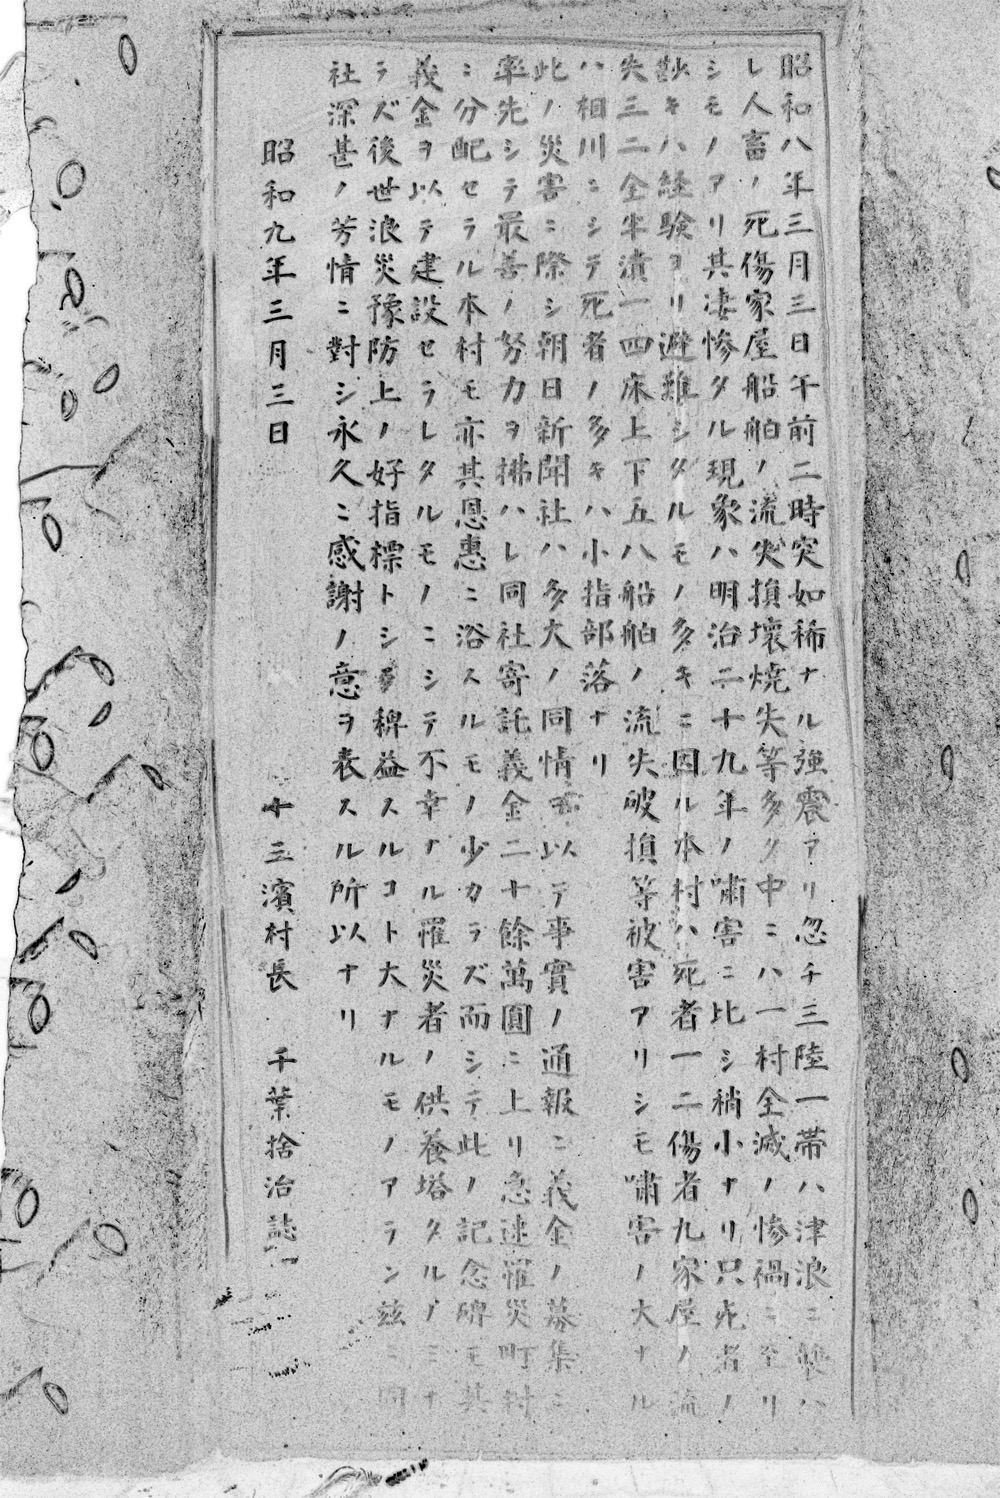 昭和八年三月三日午前二時突如稀ナル強震アリ忽チ三陸一帯ハ津浪ニ襲ハ
レ人畜ノ死傷家屋船舶ノ流失損壊焼失等多ク中ニハ一村全滅ノ惨禍ニ至リ
シモノアリ其凄惨タル現象ハ明治二十九年ノ嘯害ニ比シ稍小ナリ只死者ノ
尠キハ経験ヨリ避難シタルモノ多キニ因ル本村ハ死者一二傷者九家屋ノ流
失三二全半潰一四床上下五八船舶ノ流失破損等被害アリシモ嘯害ノ大ナル
ハ相川ニシテ死者ノ多キハ小指部落ナリ
此ノ災害ニ際シ朝日新聞社ハ多大ノ同情ヲ以テ事實ノ通報ニ義金ノ募集ニ
率先シテ最善ノ努力ヲ拂ハレ同社寄託義金二十餘萬圓ニ上リ急速罹災町村
ニ分配セラル本村モ亦其恩惠ニ浴スルモノ少カラズ而シテ此ノ記念碑モ其
義金ヲ以テ建設セラレタルモノニシテ不幸ナル罹災者ノ供養塔タルノミナ
ラズ後世浪災豫防上ノ好指標トシテ稗益スルコト大ナルモノアラン玆ニ同
社深甚ノ芳情ニ對シ永久ニ感謝ノ意ヲ表スル所以ナリ
昭和九年三月三日 十三濱村長 千葉捨治誌